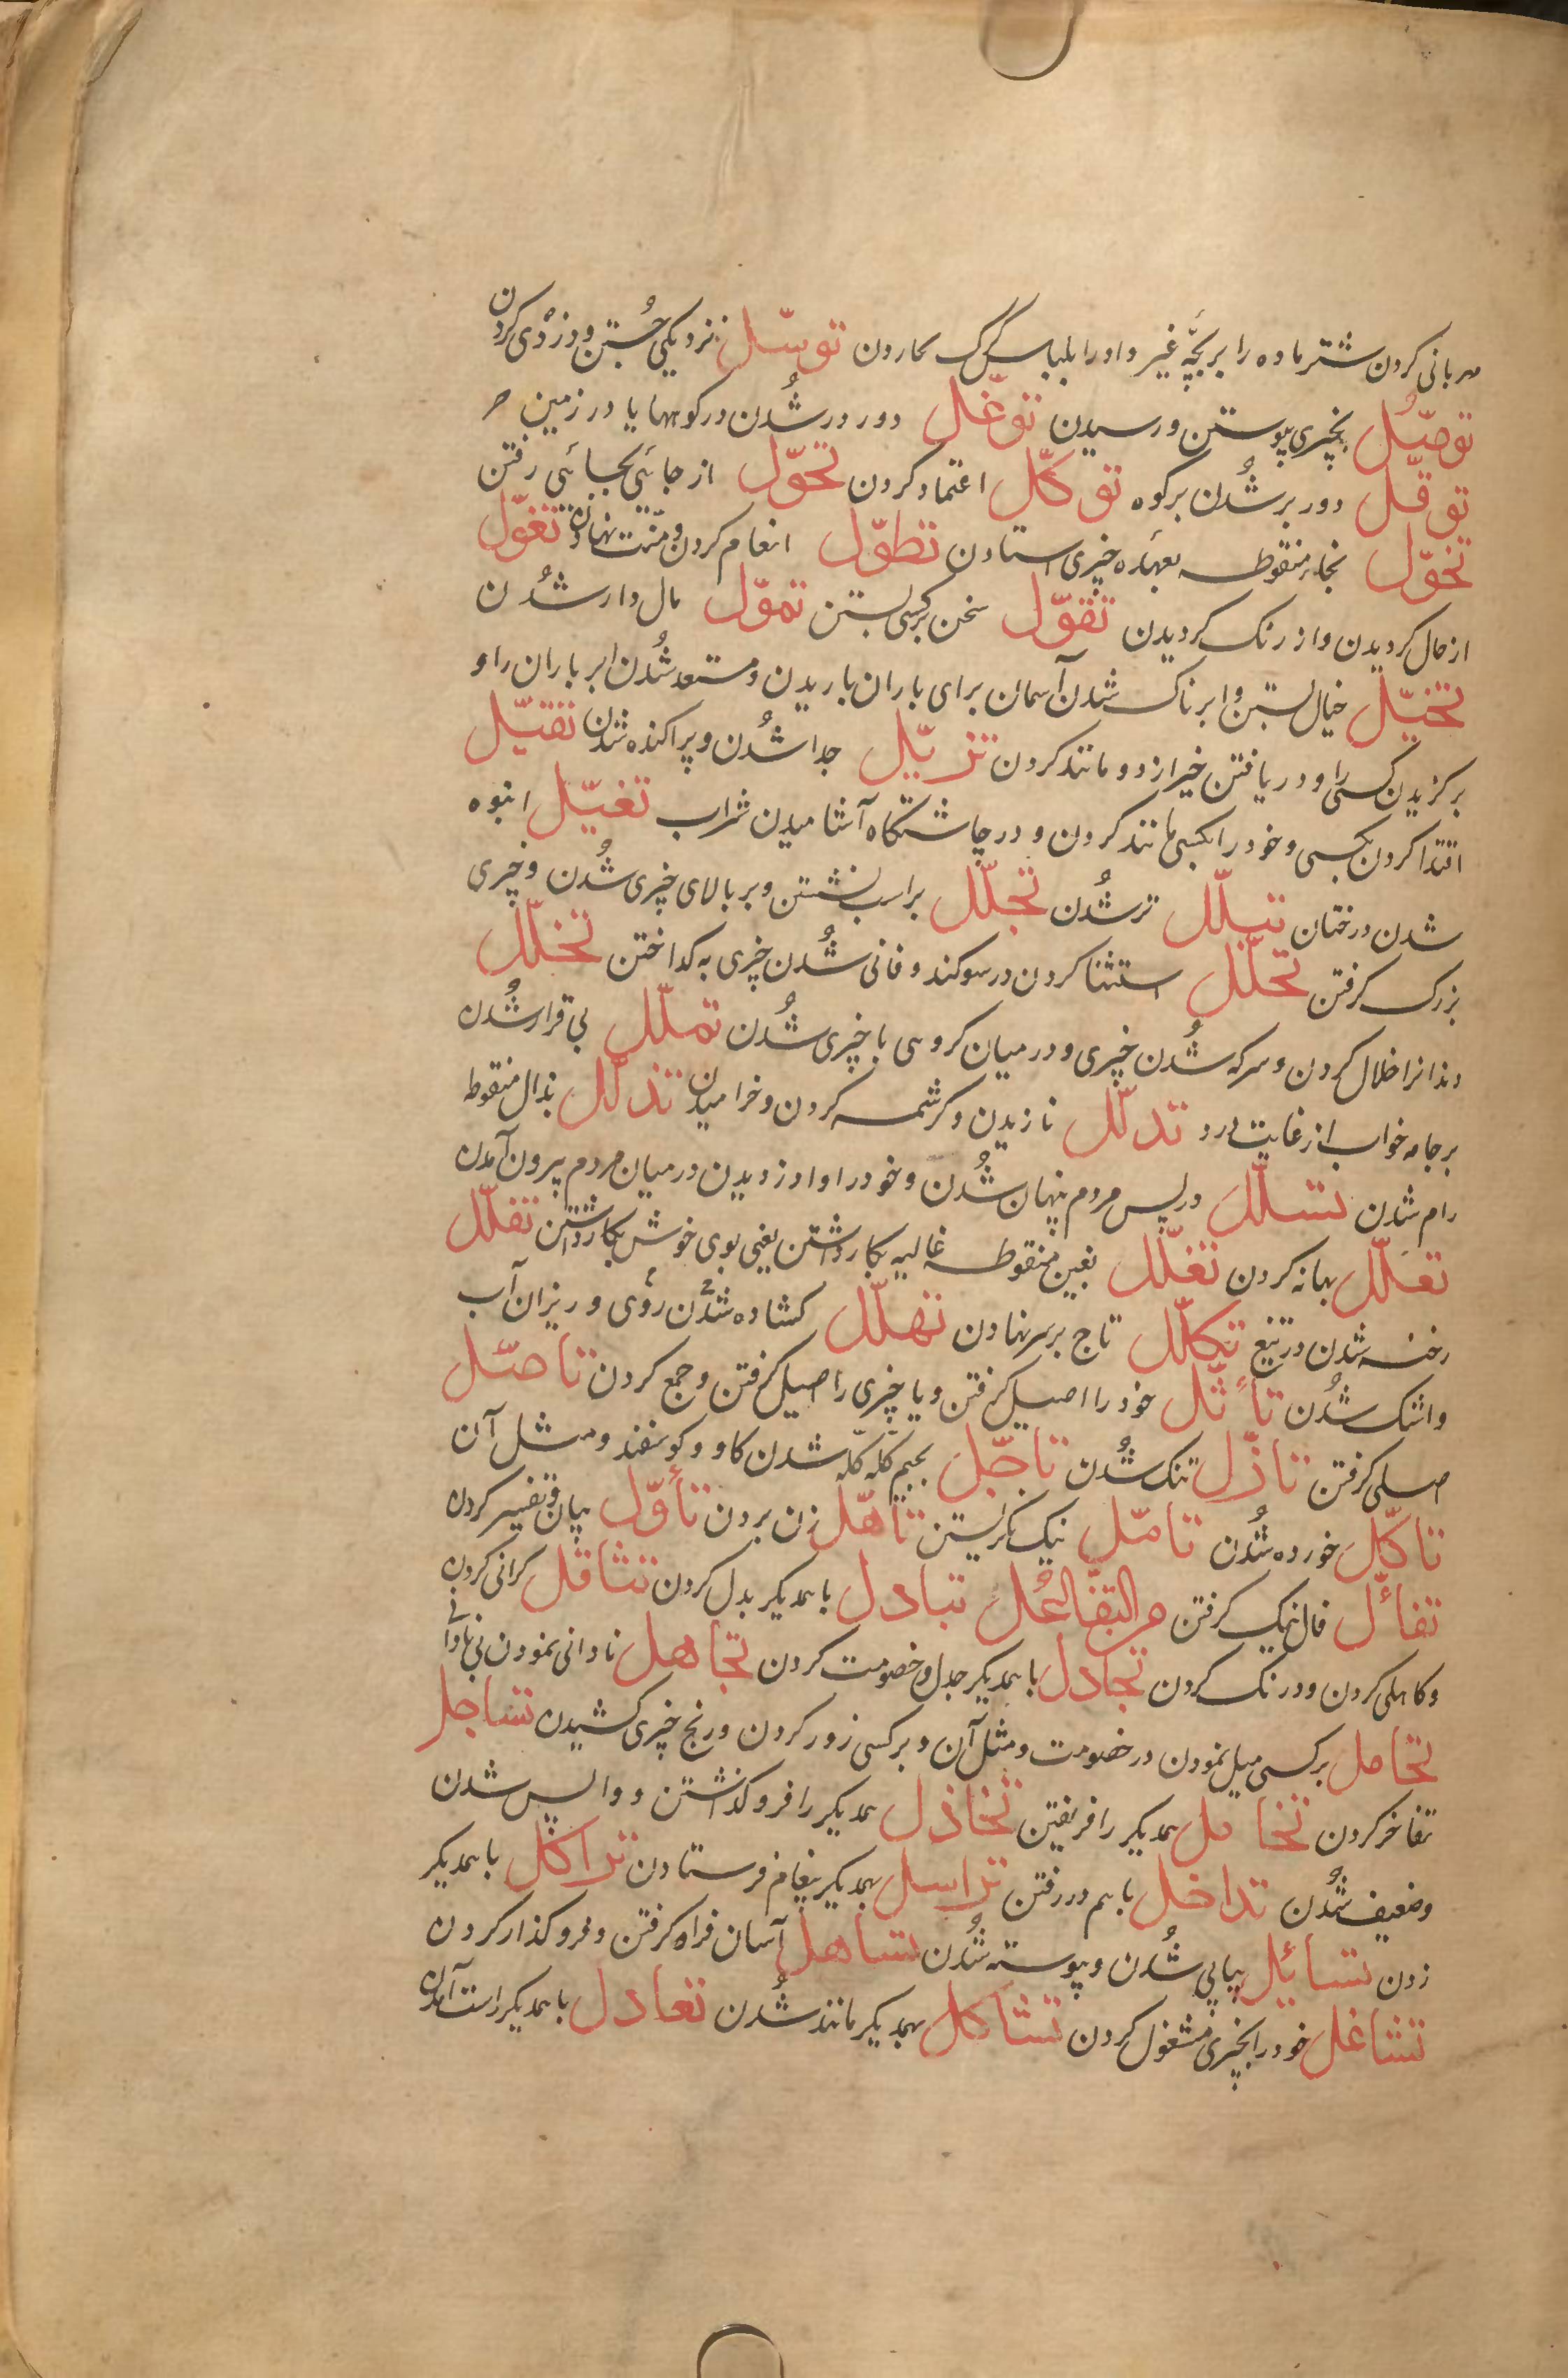 مهربانی کردن شتر ماده را بر بچّهٔ غیر و او را بلباس گرگ توسّل نزدیکی جُستن و دزدی کردن
توصّل بچیزی پیوستن و رسیدن توغّل دور در شُدن در کوهها یا در زمین
توقّل دور بر شُدن بر کوه توکّل اعتماد کردن تحوّل از جائی بجائی رفتن
تخوّل بخاء منقوطه بعهده چیزی استادن تطوّل انعام کردن و منّت نهادن تغوّل
از حال کردیدن و از رنک کردیدن تقوّل سخن بر کسی بستن تموّل مال دار شدن
تخیّل خیال بستن و ابرناک شدن آسمان برای باران باریدن و مستعد شُدن ابر باران را و
برکزیدن کسی را و دریافتن خیر از دو مانند کردن تزیّل جدا شُدن و پراکنده شدن تقیّل
اقتدا کردن بکسی و خود را بکسی مانند کردن و در چاشتگاه آشامیدن شراب تغیّل انبوه
شدن درختان تبلّل تر شُدن تجلّل بر اسب نشستن و بر بالای چیزی شُدن و چیزی
بزرک گرفتن تحلّل استثنا کردن در سوکند و فانی شُدن چیزی به کداختن تخلّل
دندانرا خلال کردن و سرکه شُدن چیزی و در میان کروهی یا چیزی شُدن تملّل بی قرار شُدن
بر جامه خواب از غایت درد تدلّل نازیدن و کرشمه کردن و خرامیدن تذلّل بذال منقوطه
رام شدن تسلّل در پس مردم پنهان شُدن و خود را وا دزدیدن در میان مردم بیرون آمدن
تعلّل بهانه کردن تغلّل بغین منقوطه غالیه بکار داشتن یعنی بوی خوش بکار داشتن تفلّل
رخنه شدن در تیغ تکلّل تاج بر سر نهادن تهلّل کشاده شدن روی و ریزان آب
و اشک شُدن تأثّل خود را اصیل گرفتن و یا چیزی را اصیل گرفتن و جمع کردن تاصّل
اصلی گرفتن تاذّل تنک شُدن تاجّل بجیم کلّه کلّه شدن کاو و کوسفند و مثل آن
تاکّل خورده شُدن تامّل نیک نکریستن تاهّل زن بردن تأوّل بیان و تفسیر کردن
تفاّل فال نیک گرفتن من التفاعُل تبادل با همدیکر بدل کردن تثاقل کرانی کردن
و کاهلی کردن و درنک کردن تجادل با همدیکر جدل و خصومت کردن تجاهل نادانی نمودن بی نادانی
تحامل بر کسی میل نمودن در خصومت و مثل آن و بر کسی زور کردن و رنج چیزی کشیدن تساجل
تفاخر کردن تخامل همدیکر را فریفتن تخاذل همدیکر را فرو کذاشتن و واپس شدن
و ضعیف شُدن تداخل با هم در رفتن تراسل بهمدیکر پیغام فرستادن تراکل با همدیکر
زدن تسایل پیاپی شُدن و پیوسته شُدن تساهل آسان فراه گرفتن و فرو کذار کردن
تشاغل خود را بچیزی مشغول کردن تشاکل بهمدیکر مانند شُدن تعادل با همدیکر راست آمدن